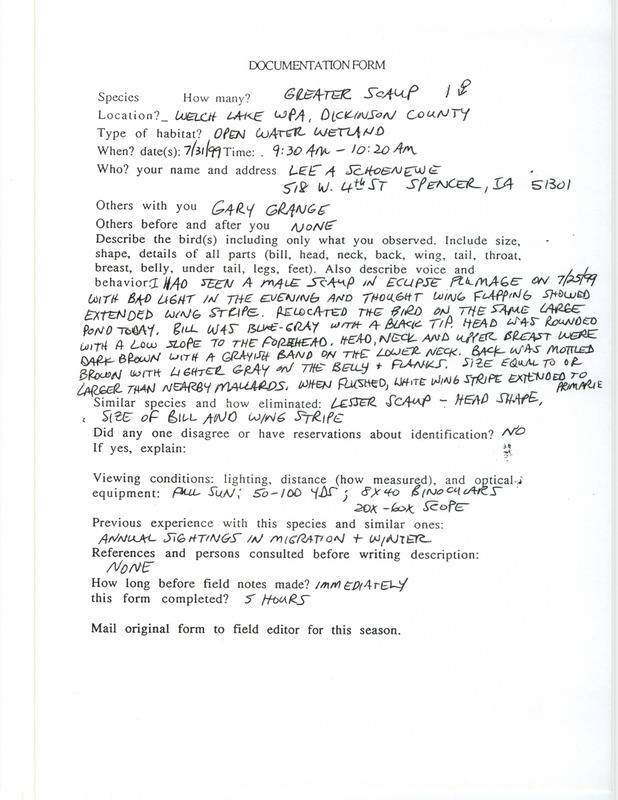 DOCUMENTATION FORM
Species How many? GREATER SCAUP 1 ♂
Location?_ WELCH LAKE WPA, DICKINSON COUNTY
Type of habitat? OPEN WATER WETLAND
When? date(s): 7/31/99 Time: . 9:30 AM - 10:20 AM
Who? your name and address LEE A SCHOENEWE
518 W. 4th ST SPENCER, IA 51301
Others with you GARY GRANGE
Others before and after you NONE
Describe the bird(s) including only what you observed. Include size,
shape, details of all parts (bill, head, neck, back, wing, tail, throat,
breast, belly, under tail, legs, feet). Also describe voice and
behavior: I HAD SEEN A MALE SCAUP IN ECLIPSE PLUMAGE ON 7/25/99
WITH BAD LIGHT IN THE EVENING AND THOUGHT WING FLAPPING SHOWED
EXTENDED WING STRIPE. RELOCATED THE BIRD ON THE SAME LARGE
POND TODAY. BILL WAS BLUE-GRAY WITH A BLACK TIP. HEAD WAS ROUNDED
WITH A LOW SLOPE TO THE FOREHEAD. HEAD, NECK AND UPPER BREAST WERE
DARK BROWN WITH A GRAYISH BAND ON THE LOWER NECK. BACK WAS MOTTLED
BROWN WITH LIGHTER GRAY ON THE BELLY + FLANKS. SIZE EQUAL TO OR
LARGER THAN NEARBY MALLARDS. WHEN FLUSHED, WHITE WING STRIPE EXTENDED TO
PRIMARIE
Similar species and how eliminated: LESSER SCAUP - HEAD SHAPE,
SIZE OF BILL AND WING STRIPE
Did any one disagree or have reservations about identification? NO
If yes, explain:
Viewing conditions: lighting, distance (how measured), and optical
equipment: FULL SUN; 50-100 YDS; 8X40 BINOCULARS
20X-60X SCOPE
Previous experience with this species and similar ones:
ANNUAL SIGHTINGS IN MIGRATION + WINTER
References and persons consulted before writing description:
NONE
How long before field notes made? IMMEDIATELY
this form completed? 5 HOURS
Mail original form to field editor for this season.